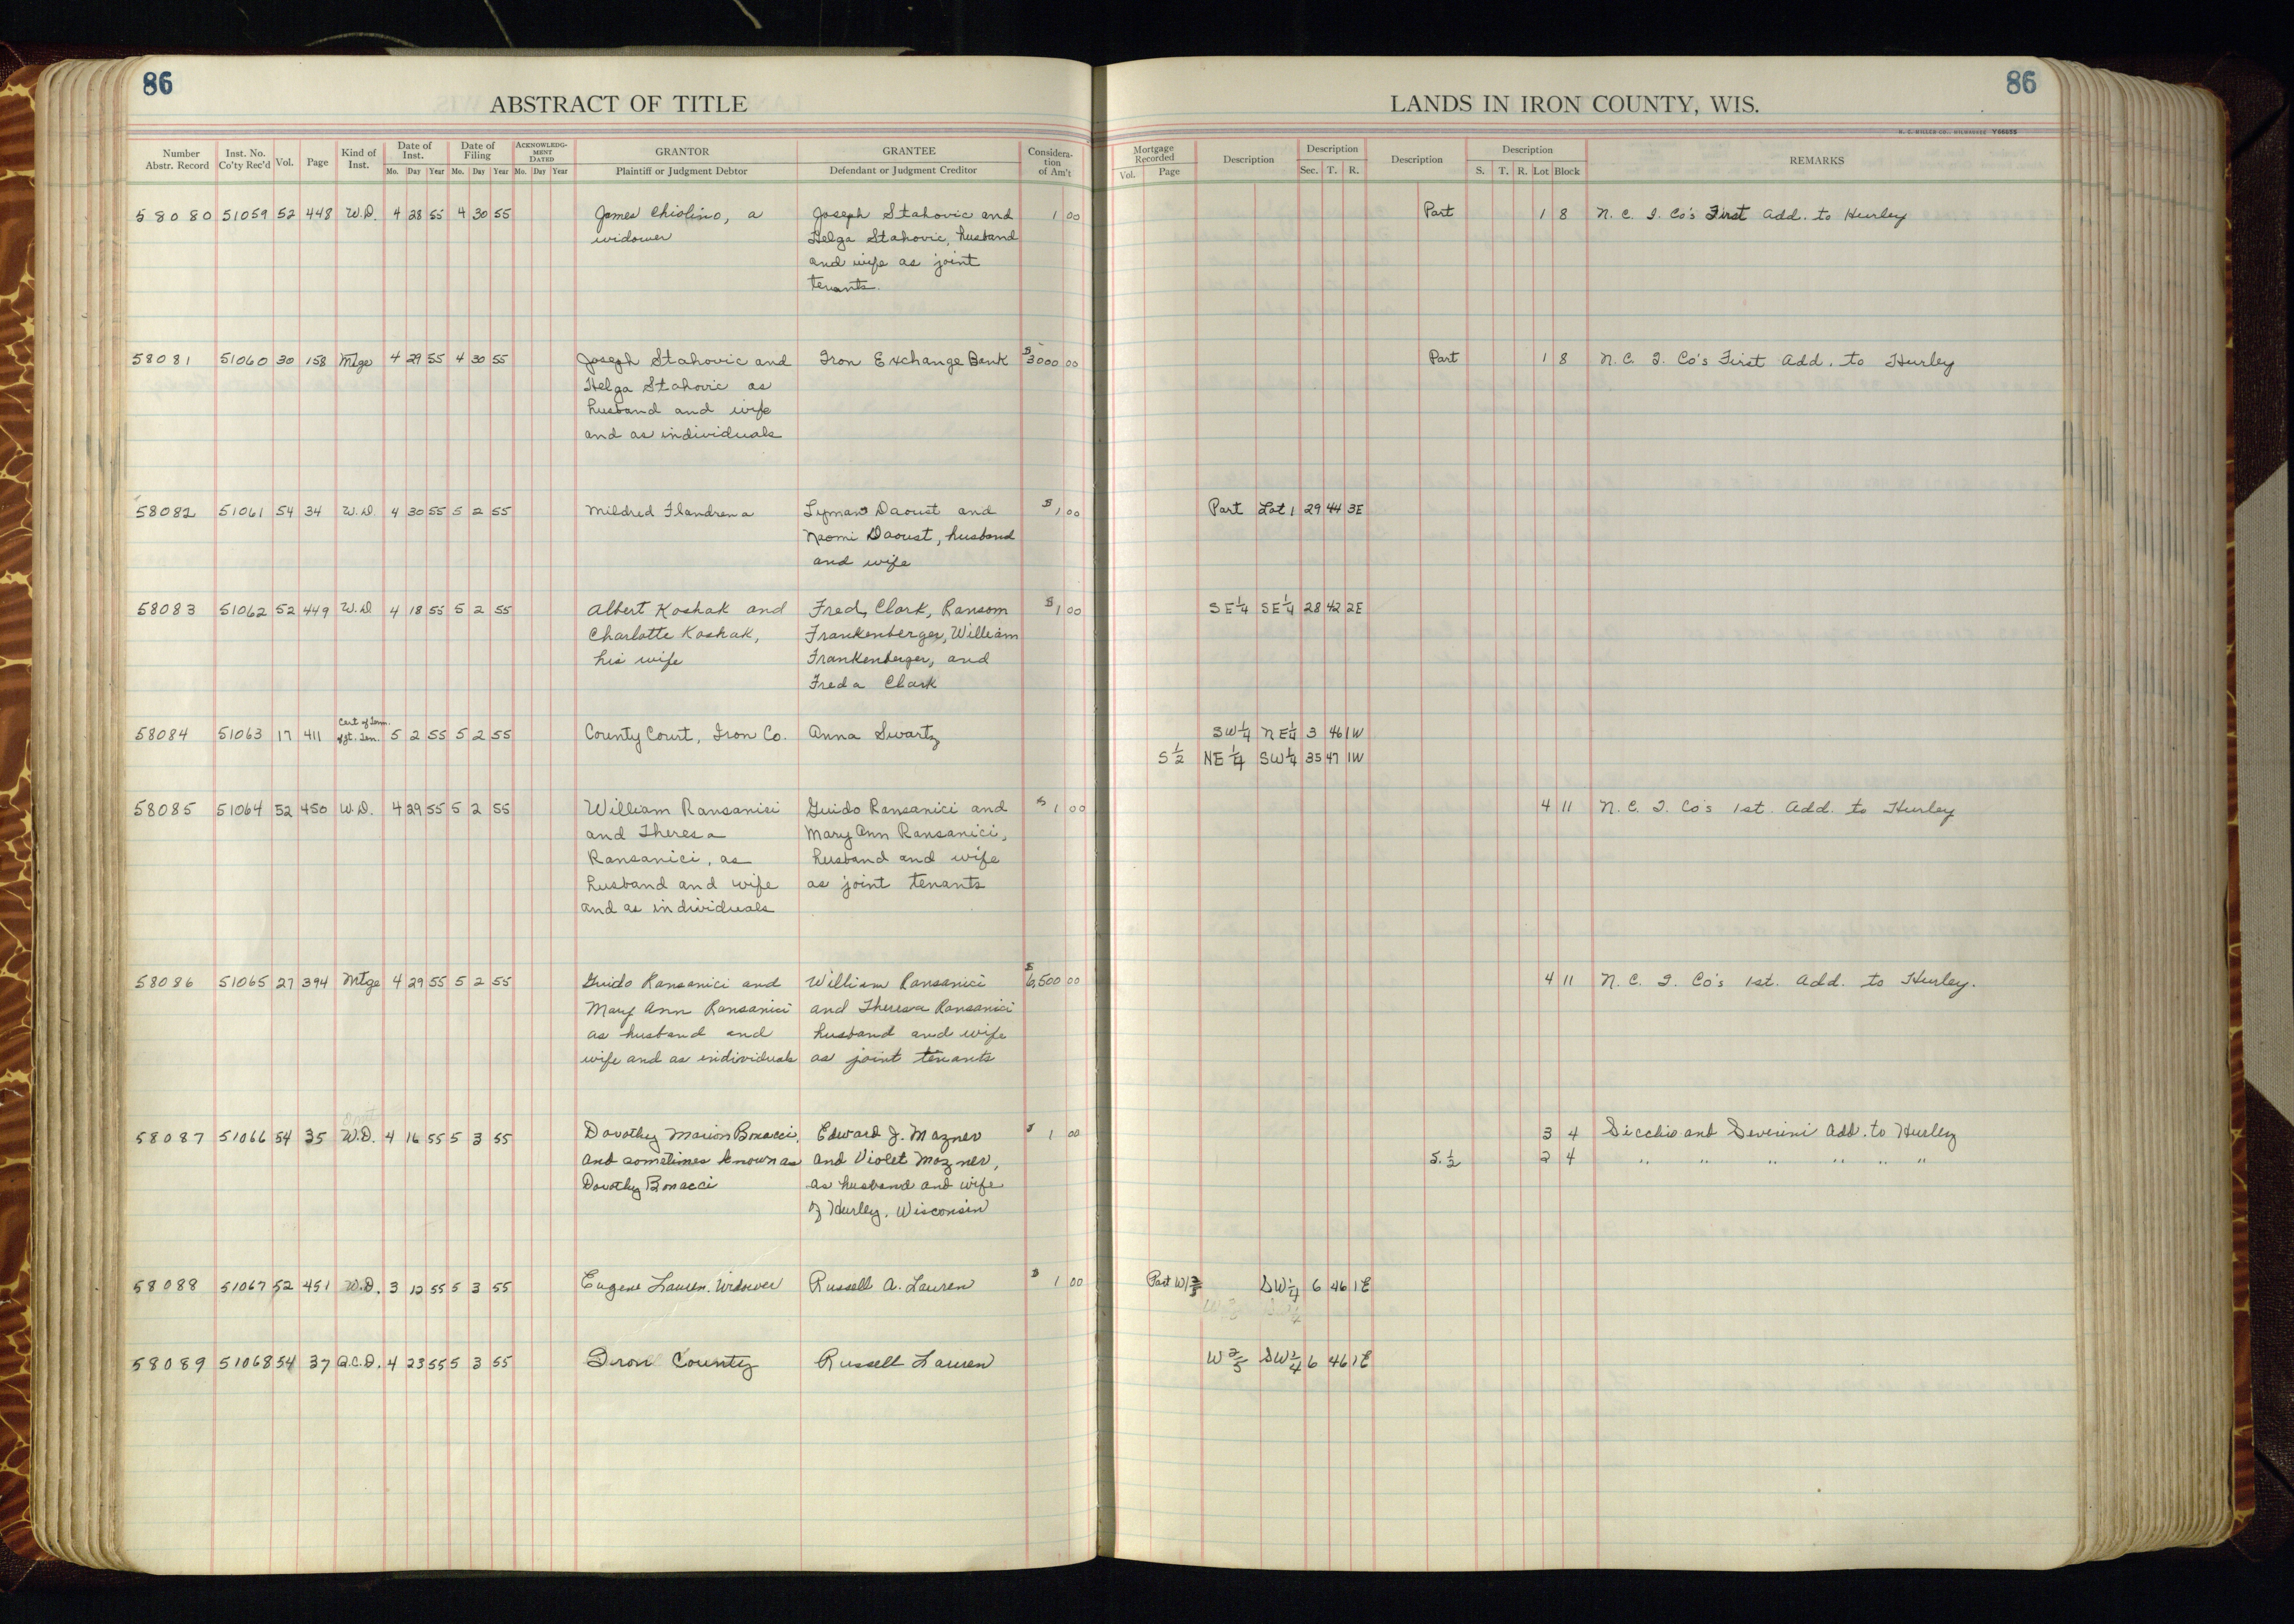 86
86
ABSTRACT OF TITLE
LANDS IN IRON COUNTY, WIS.
H. C. MILLER CO., MILWAUKEE Y66655
Number Abstr. Record Inst. No. Co'ty Rec'd Vol. Page Kind of Inst. Date of Inst. Mo. Day Year Date of Filing Mo. Day Year ACKNOWLEDG-MENT DATED Mo. Day Year GRANTOR Plaintiff or Judgment Debtor GRANTEE Defendant or Judgment Creditor Considera-tion of Am't
Mortgage Recorded Vol. Page Description Description Sec. T. R. Description Description S. T. R. Lot Block REMARKS
58080 51059 52 448 W.D. 4 28 55 4 30 55 James Chiolino, a Joseph Stahovic and 1 00 Part 1 8 N. C. I. Co's First Add. to Hurley
widower Helga Stahovic, husband
and wife as joint
tenants.
58081 51060 30 158 Mtge 4 29 55 4 30 55 Joseph Stahovic and Iron Exchange Bank $3000 00 Part 1 8 N. C. I. Co's First Add. to Hurley
Helga Stahovic as
husband and wife
and as individuals
58082 51061 54 34 W.D. 4 30 55 5 2 55 Mildred Flandrena Lyman Daoust and $1 00 Part Lot 1 29 44 3E
Naomi Daoust, husband
and wife
58083 51062 52 449 W.D 4 18 55 5 2 55 Albert Koshak and Fred, Clark, Ransom $1 00 SE¼ SE¼ 28 42 2E
Charlotte Koshak, Frankenberger, William
his wife Frankenberger, and
Freda Clark
Cert of Term.
58084 51063 17 411 of Jt. Ten. 5 2 55 5 2 55 County Court, Iron Co. Anna Swartz SW¼ NE¼ 3 46 1W
S½ NE¼ SW¼ 35 47 1W
58085 51064 52 450 W.D. 4 29 55 5 2 55 William Ransanici Guido Ransanici and $1 00 4 11 N. C. I. Co's 1st. Add. to Hurley
and Theresa Mary Ann Ransanici,
Ransanici, as husband and wife
husband and wife as joint tenants
and as individuals
58086 51065 27 394 Mtge 4 29 55 5 2 55 Guido Ransanici and William Ransanici $6,500 00 4 11 N. C. I. Co's 1st. Add. to Hurley.
Mary Ann Ransanici and Theresa Ransanici
as husband and husband and wife
wife and as individuals as joint tenants
58087 51066 54 35 W.D. 4 16 55 5 3 55 Dorothy Marion Bonacci, Edward J. Mazner $1 00 3 4 Secchio and Severini Add. to Hurley
and sometimes known as and Violet Mazner, S.½ 2 4 " " " " " "
Dorothy Bonacci as husband and wife
of Hurley, Wisconsin
58088 51067 52 451 W.D. 3 12 55 5 3 55 Eugene Lauren, Widower Russell A. Lauren $1 00 Part W⅗ SW¼ 6 46 1E
58089 51068 54 37 Q.C.D. 4 23 55 5 3 55 Iron County Russell Lauren W⅖ SW¼ 6 46 1E